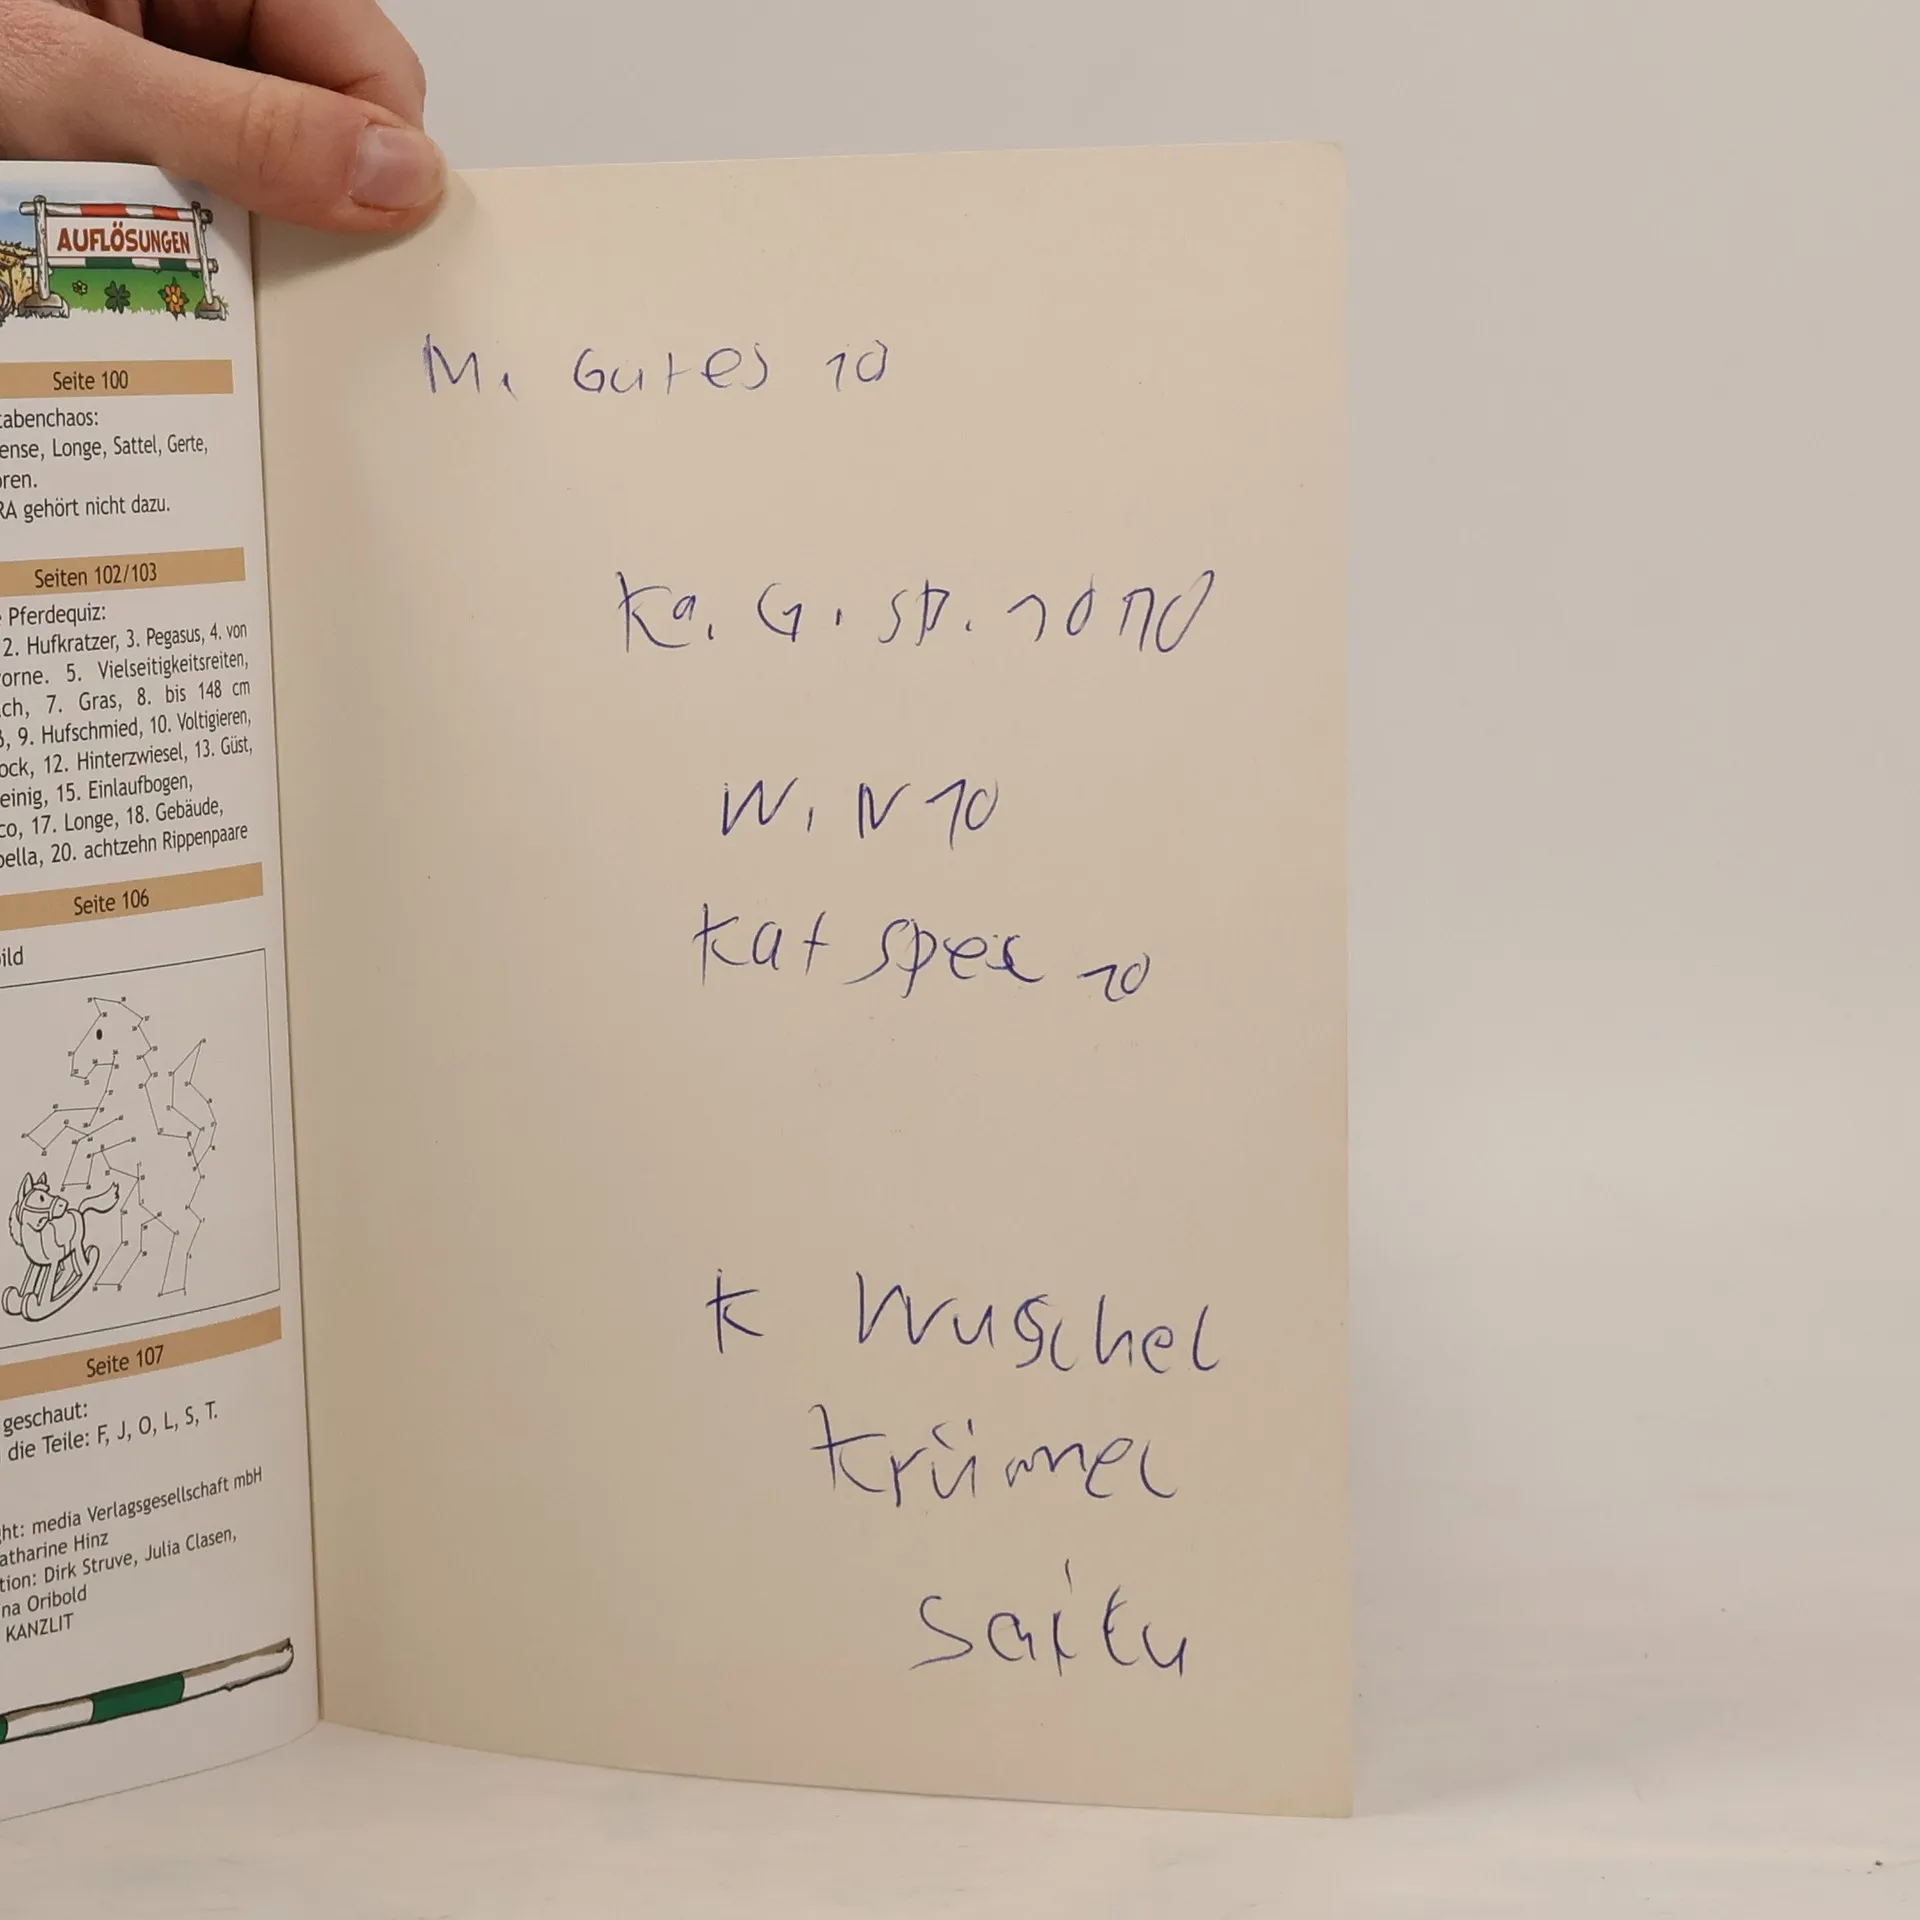 AUFLÖSUNGEN
Seite 100
tabenchaos:
ense, Longe, Sattel, Gerte,
oren.
RA gehört nicht dazu.
Seiten 102/103
Pferdequiz:
2. Hufkratzer, 3. Pegasus, 4. von
orne. 5. Vielseitigkeitsreiten,
ch, 7. Gras, 8. bis 148 cm
ß, 9. Hufschmied, 10. Voltigieren,
ock, 12. Hinterzwiesel, 13. Güst,
einig, 15. Einlaufbogen,
co, 17. Longe, 18. Gebäude,
bella, 20. achtzehn Rippenpaare
Seite 106
ild
Seite 107
geschaut:
die Teile: F, J, O, L, S, T.
ght: media Verlagsgesellschaft mbH
atharine Hinz
tion: Dirk Struve, Julia Clasen,
na Oribold
KANZLIT
M. Gutes 10
Ka. G. sp. 10 10
W. N 10
Kat 10
K Wuschel
Krümel